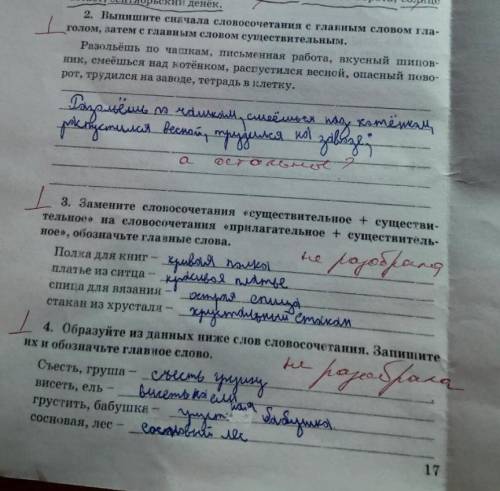 сентябрьский денёк.
2. Выпишите сначала словосочетания с главным словом гла-
голом, затем с главным словом существительным.
Разольёшь по чашкам, письменная работа, вкусный шипов-
ник, смеёшься над котёнком, распустился весной, опасный пово-
рот, трудился на заводе, тетрадь в клетку.
Разольёшь по чашкам, смеёшься над котёнком,
распустился весной, трудился на заводе;
а остальное?
3. Замените словосочетания «существительное + существи-
тельное» на словосочетания «прилагательное + существитель-
ное», обозначьте главные слова.
не разобрала
Полка для книг – кривая полка
платье из ситца – красивая платье
спица для вязания – острая спица
стакан из хрусталя – хрустальный стакан
4. Образуйте из данных ниже слов словосочетания. Запишите
их и обозначьте главное слово.
не разобрала
Съесть, груша – съесть грушу
висеть, ель – висеть на ели
грустить, бабушка – бабушка
сосновая, лес – сосновый лес
17